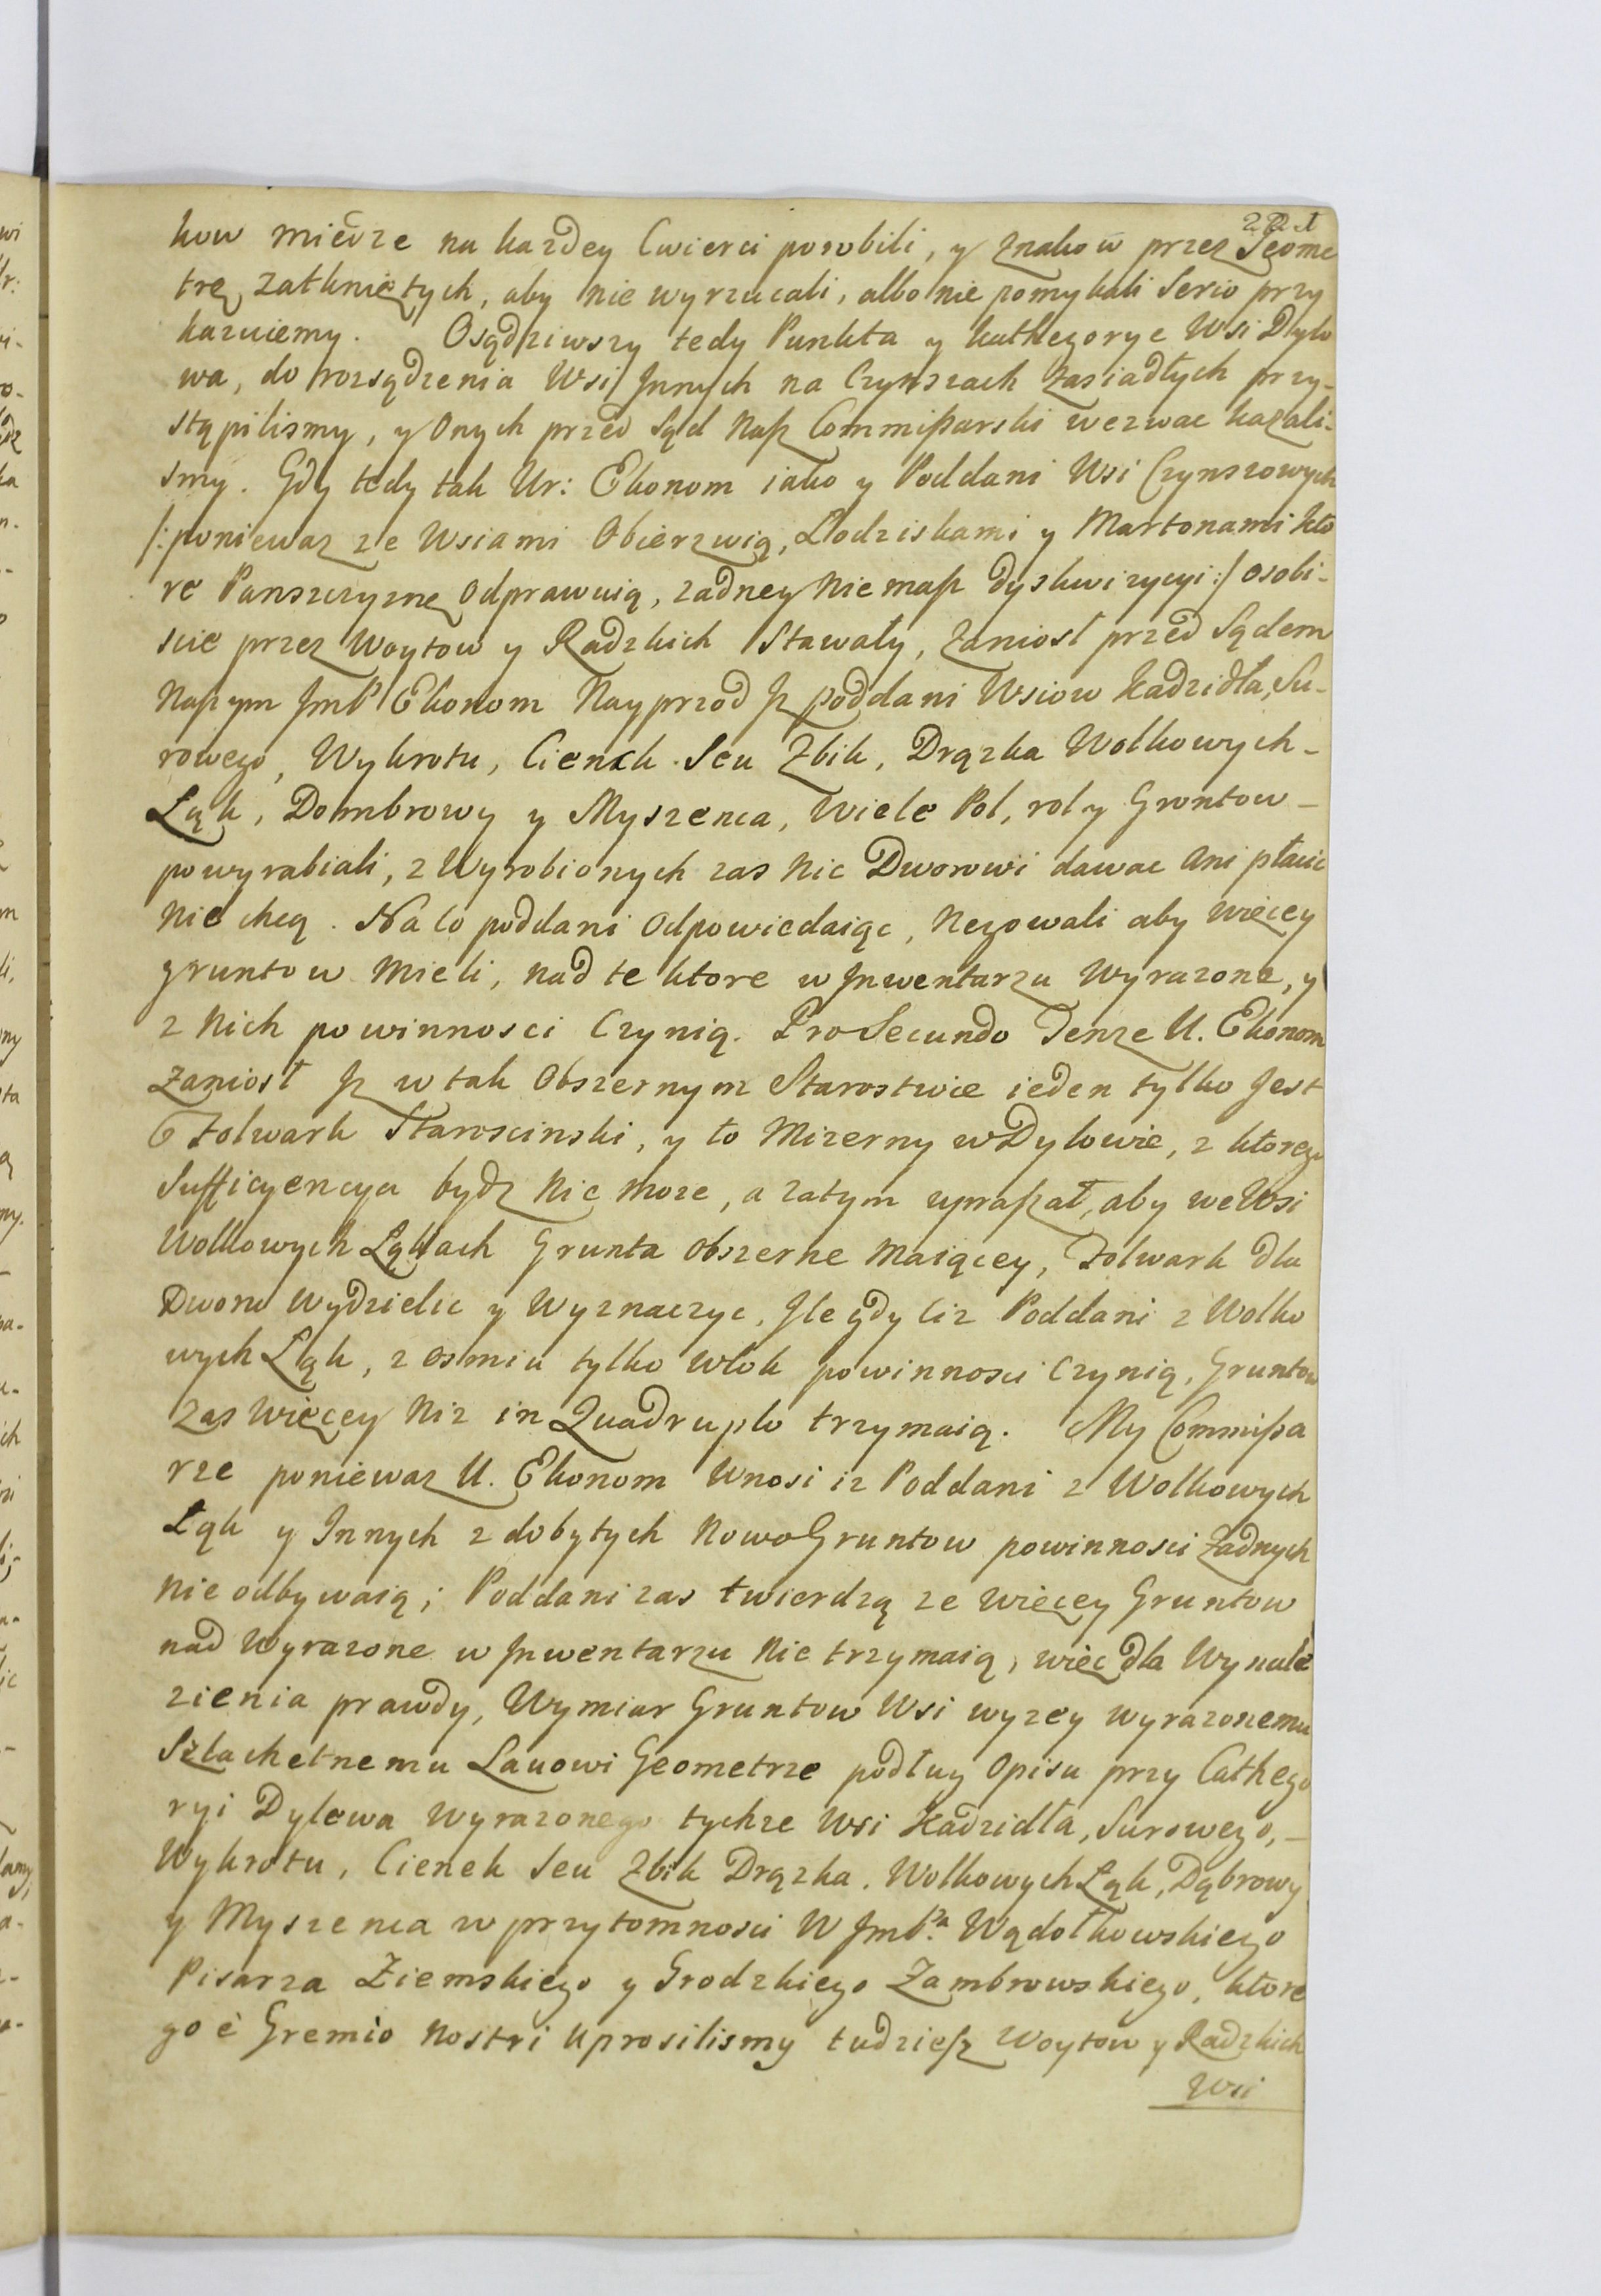 kow miedze na kazdey Cwierci porobili, y znakow przez Geome
trę zatkniętych, aby nie wyrzucali, albo nie pomykali Serio przy
kazuiemy. Osądziwszy tedy Punkta y kathegorye Wsi Dylo
wa, do rozsądzenia Wsi Jnnych na Czynszach zasiadłych przy-
stąpilismy, y Onych przed Sąd Nasz Commißarski wezwac kazali-
smy. Gdy tedy tak Ur: Ekonom iako y Poddani Wsi Czynszowych
/:poniewaz ze Wsiami Obierzwią, Lodziskami y Martonami kto
re Panszczyznę Odprawuią, zadney Niemasz dyskwizycyi:/ osobi-
scie przez Woytow y Radzkich Stawały, zaniosł przed Sądem
Naszym JmP Ekonom Nayprzod Jz poddani Wsiow Kadzidła, Su-
rowego, Wykrotu, Cienck Seu Zbik, Drązka Wolkowych-
Ląk, Dombrowy y Myszenca, Wiele Pol, rol y Grontow-
powyrabiali, z Wyrobionych zas Nic Dworowi dawac Ani płacic
Nie chcą. Na to poddani Odpowiedaiąc, Negowali aby więcey
gruntow Mieli, nad te ktore w Jnwentarzu Wyrazone, y
z Nich powinnosci Czynią. Pro Secundo Tenze U. Ekonom
zaniosł Jz w tak Obszernym Starostwie ieden tylko Jest
Folwark Staroscinski, y to Mizerny w Dylowie, z ktorego
Sufficyencya bydz Nie moze, a zatym upraszał, aby we Wsi
Wolkowych Ląkach Grunta obszerne Maiącey, Folwark dla
Dworu Wydzielic y Wyznaczyc, Jle gdy ciz Poddani z Wolko
wych Ląk, z osmiu tylko włok powinnosci Czynią, Gruntow
zas Więcey Niz in Quadruplo trzymaią. My Commißa
rze poniewaz U. Ekonom Wnosi iz Poddani z Wolkowych
Ląk y Innych zdobytych Nowo Gruntow powinnosci Zadnych
Nie odbywaią; Poddani zas twierdzą ze więcey Gruntow
nad Wyrazone w Jnwentarzu Nie trzymaią, więc dla Wynale
zienia prawdy, Wymiar Gruntow Wsi wyzey wyrazonemu
Szlachetnemu Lauowi Geometrze podług Opisu przy Cathego
ryi Dylewa Wyrazonego tychze Wsi Kadzidła, Surowego,-
Wykrotu, Cienek Seu Zbik Drązka, Wolkowych Ląk, Dąbrowy
y Myszenca w przytomnosci W JmPa. Wądołkowskiego
Pisarza Ziemskiego y Grodzkiego Zambrowskiego, ktore
go è Gremio Nostri Uprosilismy tudziesz Woytow y Radzkich
Wsi